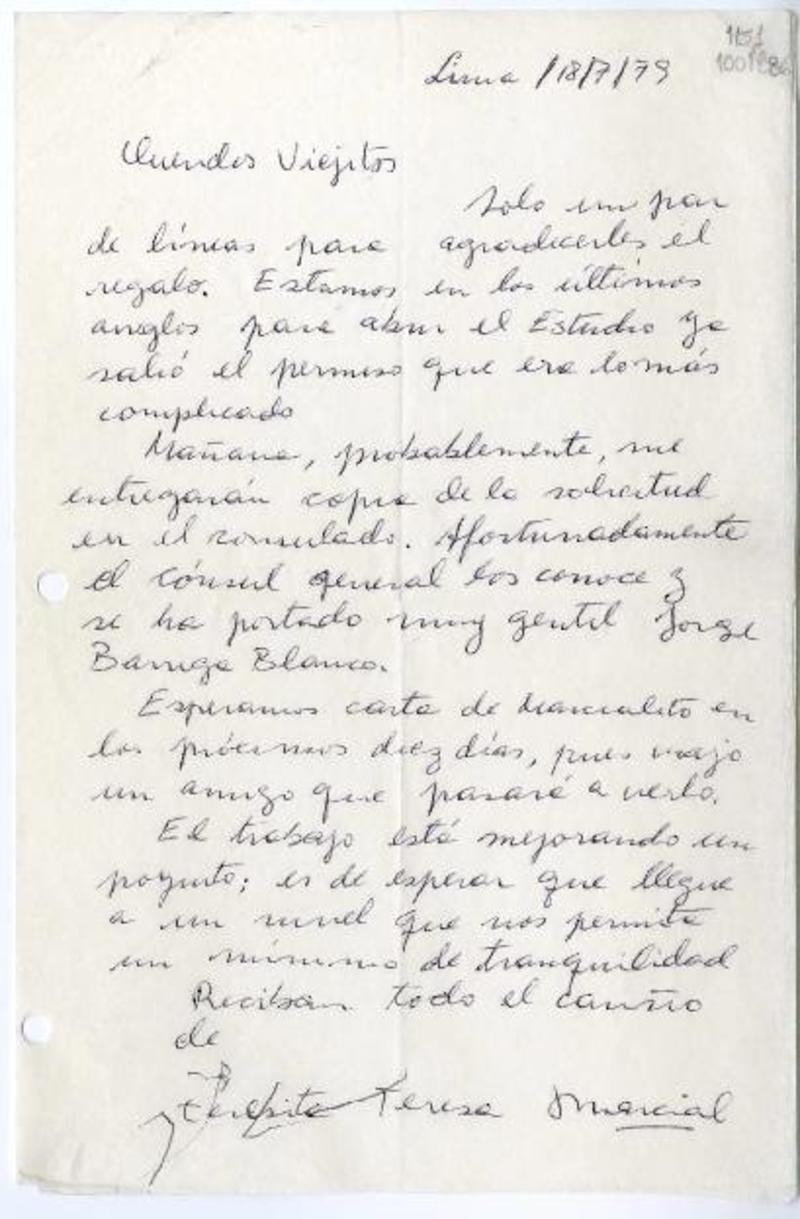 Lima /18/7/79
Queridos Viejitos
Solo un par
de líneas para agradecerles el
regalo. Estamos en los últimos
areglos para abrir el Estudio ya
salió el permiso que era lo más
complicado
Mañana, probablemente, me
entregarán copia de la solicitud
en el consulado. Afortunadamente
el cónsul general los conoce y
se ha portado muy gentil Jorge
Barriga Blanco.
Esperamos carta de Marcialito en
los próximos diez días, pues viajo
un amigo que pasará a verlo.
El trabajo está mejorando un
poquito; es de esperar que llegue
a un nivel que nos permita
un mínimo de tranquilidad
Reciban todo el cariño
de
Teresita Teresa Marcial